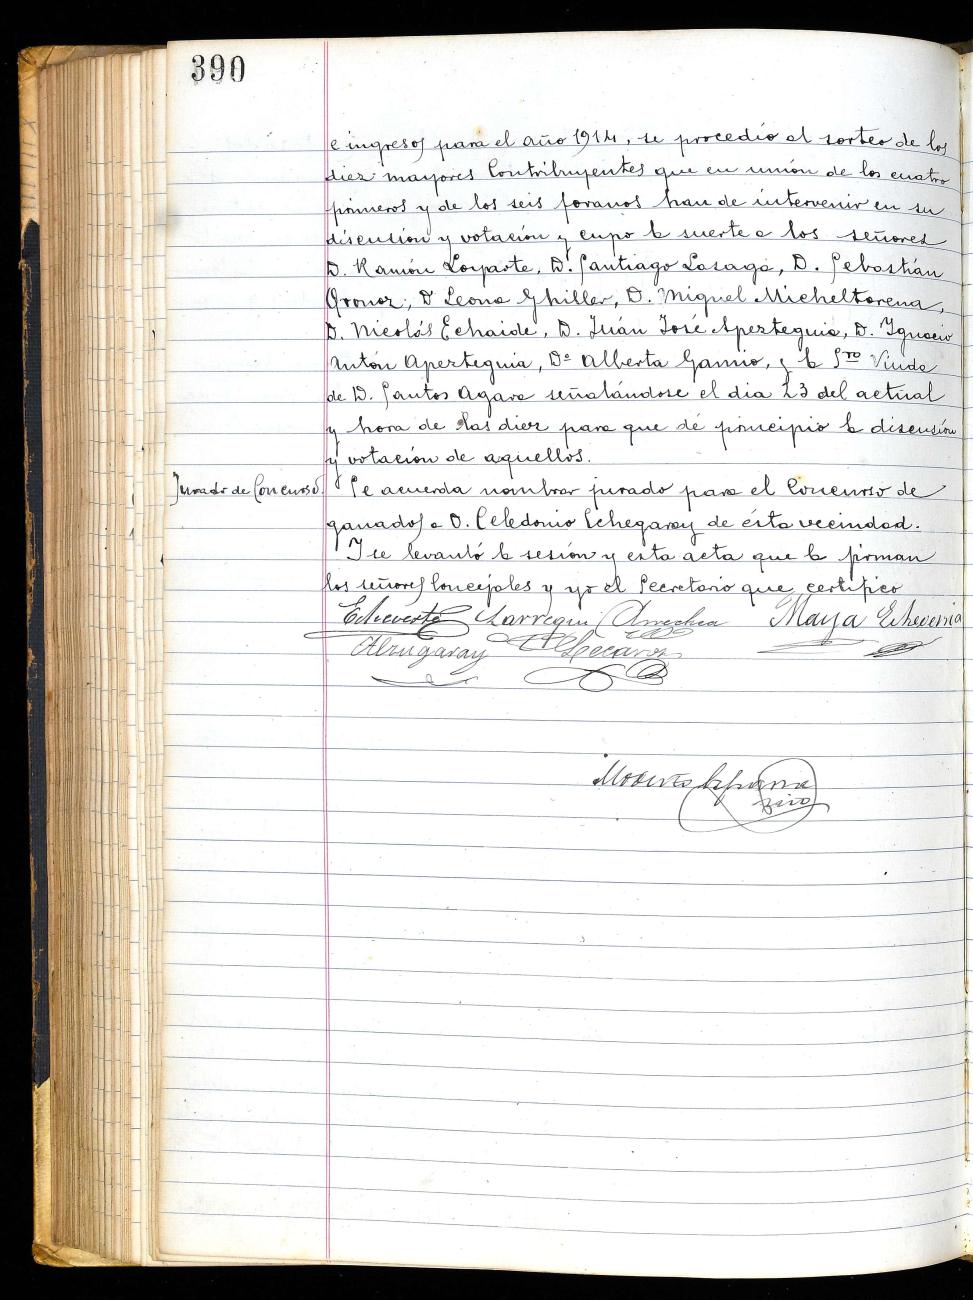 390
e ingresos para el año 1914, se procedió al sorteo de los
diez mayores Contribuyentes que en unión de los cuatro
primeros y de los seis foranos han de intervenir en su
discusión y votación y cupo la suerte a los señores
D. Ramón Loyarte, D. Santiago Lasaga, D. Sebastián
Oronoz, Dª Leona Ghiller, D. Miguel Micheltorena,
D. Nicolás Echaide, D. Juán José Apezteguia, D. Ignacio
Antón Apezteguia, Dª Alberta Gamio, y la Sra Viuda
de D. Santos Agara señalándose el dia 23 del actual
y hora de las diez para que dé principio la discusión
y votación de aquellos.
Jurado de Concurso. Se acuerda nombrar jurado para el Concurso de
ganados a D. Celedonio Echegaray de ésta vecindad.
Y se levantó la sesión y esta acta que la firman
los señores Concejales y yo el Secretario que certifico
Echeverte Larregui Arrechea Maya Echeverria
Alzugaray